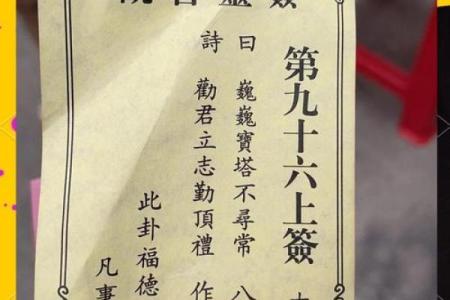 第九十六上簽
曰 巍巍寶塔不尋常 八
詩 勸君立志勤頂禮 作
此卦福德
凡事